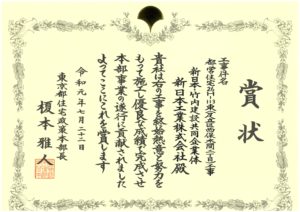 賞状
工事件名
新日本・竹内建設共同企業体
新日本工業株式会社殿
貴社は右の工事を終始熱意と努力を
もって施工し優良な成績で完成させ
本部事業の遂行に貢献されました
よってここにこれを賞します
令和元年七月二十二日
東京都住宅政策本部長
榎本雅人